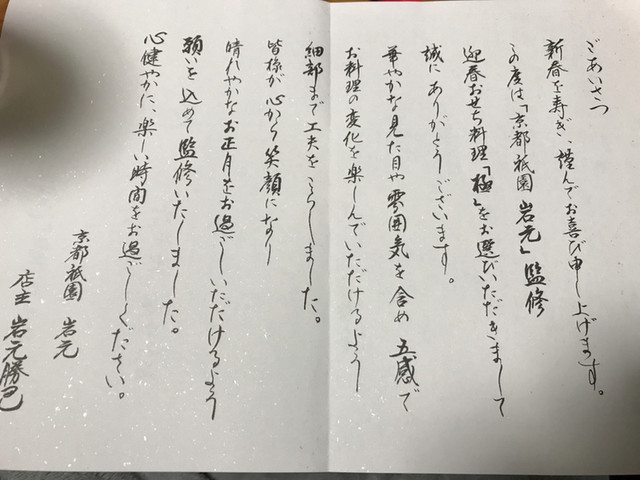 ごあいさつ
新春を寿ぎ、謹んでお喜び申し上げます。
この度は「京都祇園 岩元」監修
迎春おせち料理「極」をお選びいただきまして
誠にありがとうございます。
華やかな見た目や雰囲気を含め 五感で
お料理の変化を楽しんでいただけるよう
細部まで工夫をこらしました。
皆様が心から笑顔になり
晴れやかなお正月をお過ごしいただけるよう
願いを込めて監修いたしました。
心健やかに、楽しい時間をお過ごしください。
京都祇園 岩元
店主 岩元勝己